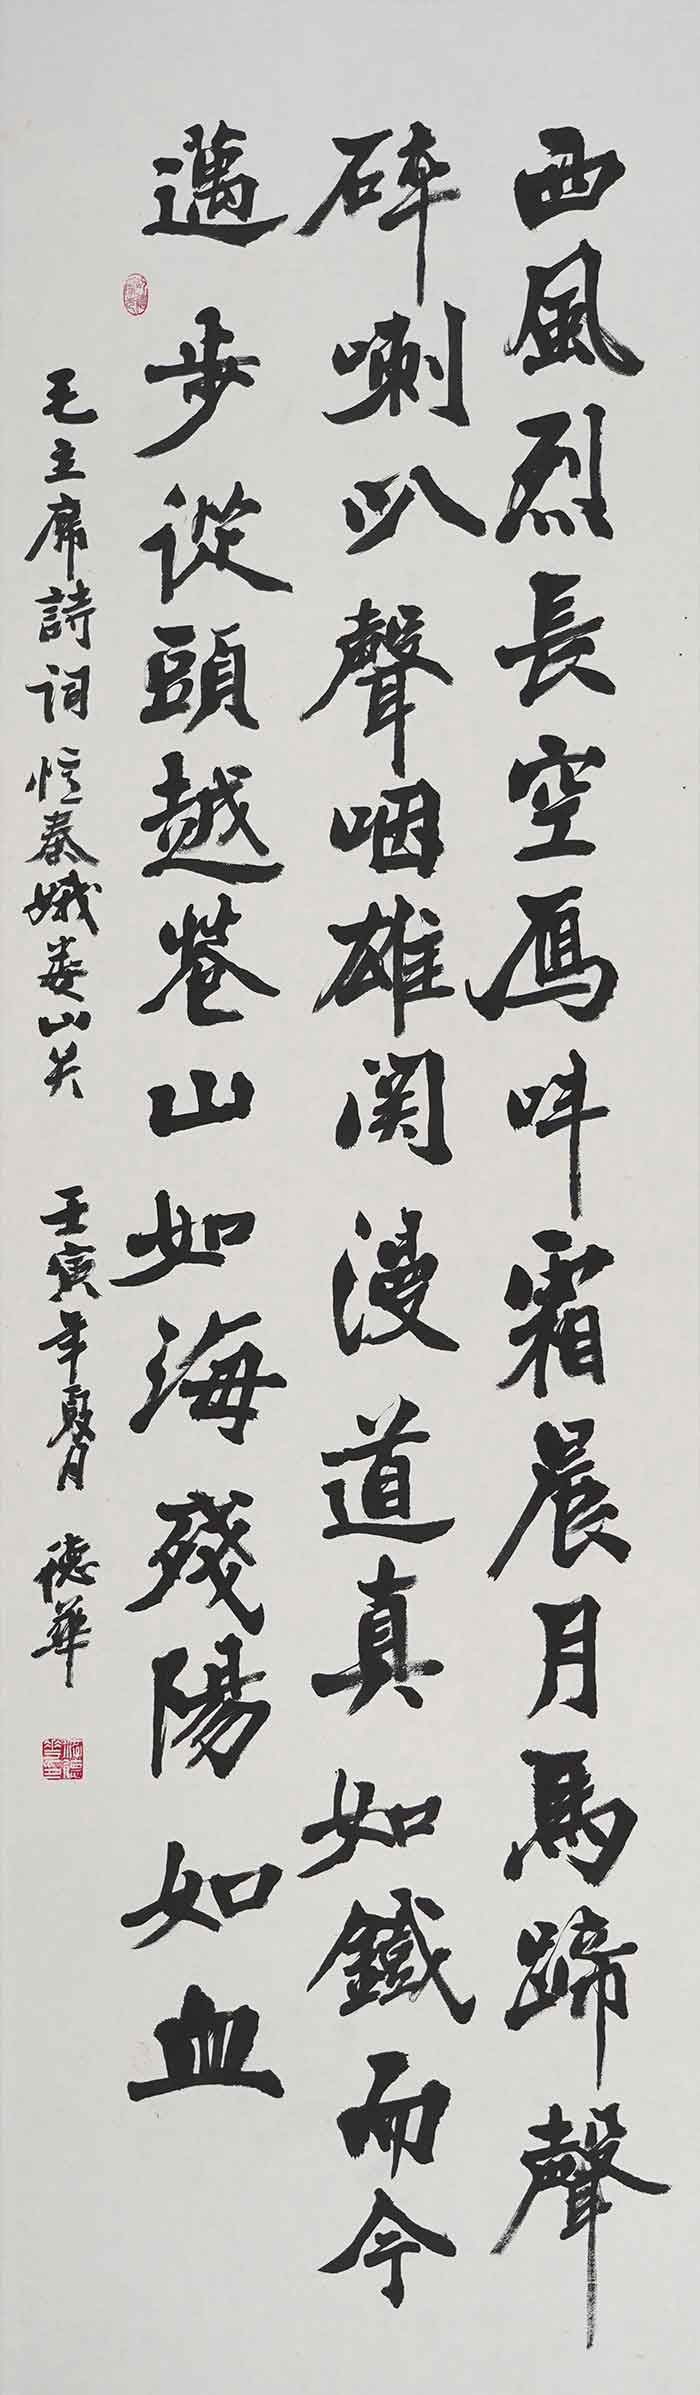 西風烈長空鴈叫霜晨月馬蹄聲
碎喇叭聲咽雄関漫道真如鐵而今
邁步從頭越蒼山如海殘陽如血
毛主席詩词憶秦娥娄山关 壬寅年夏月 德華